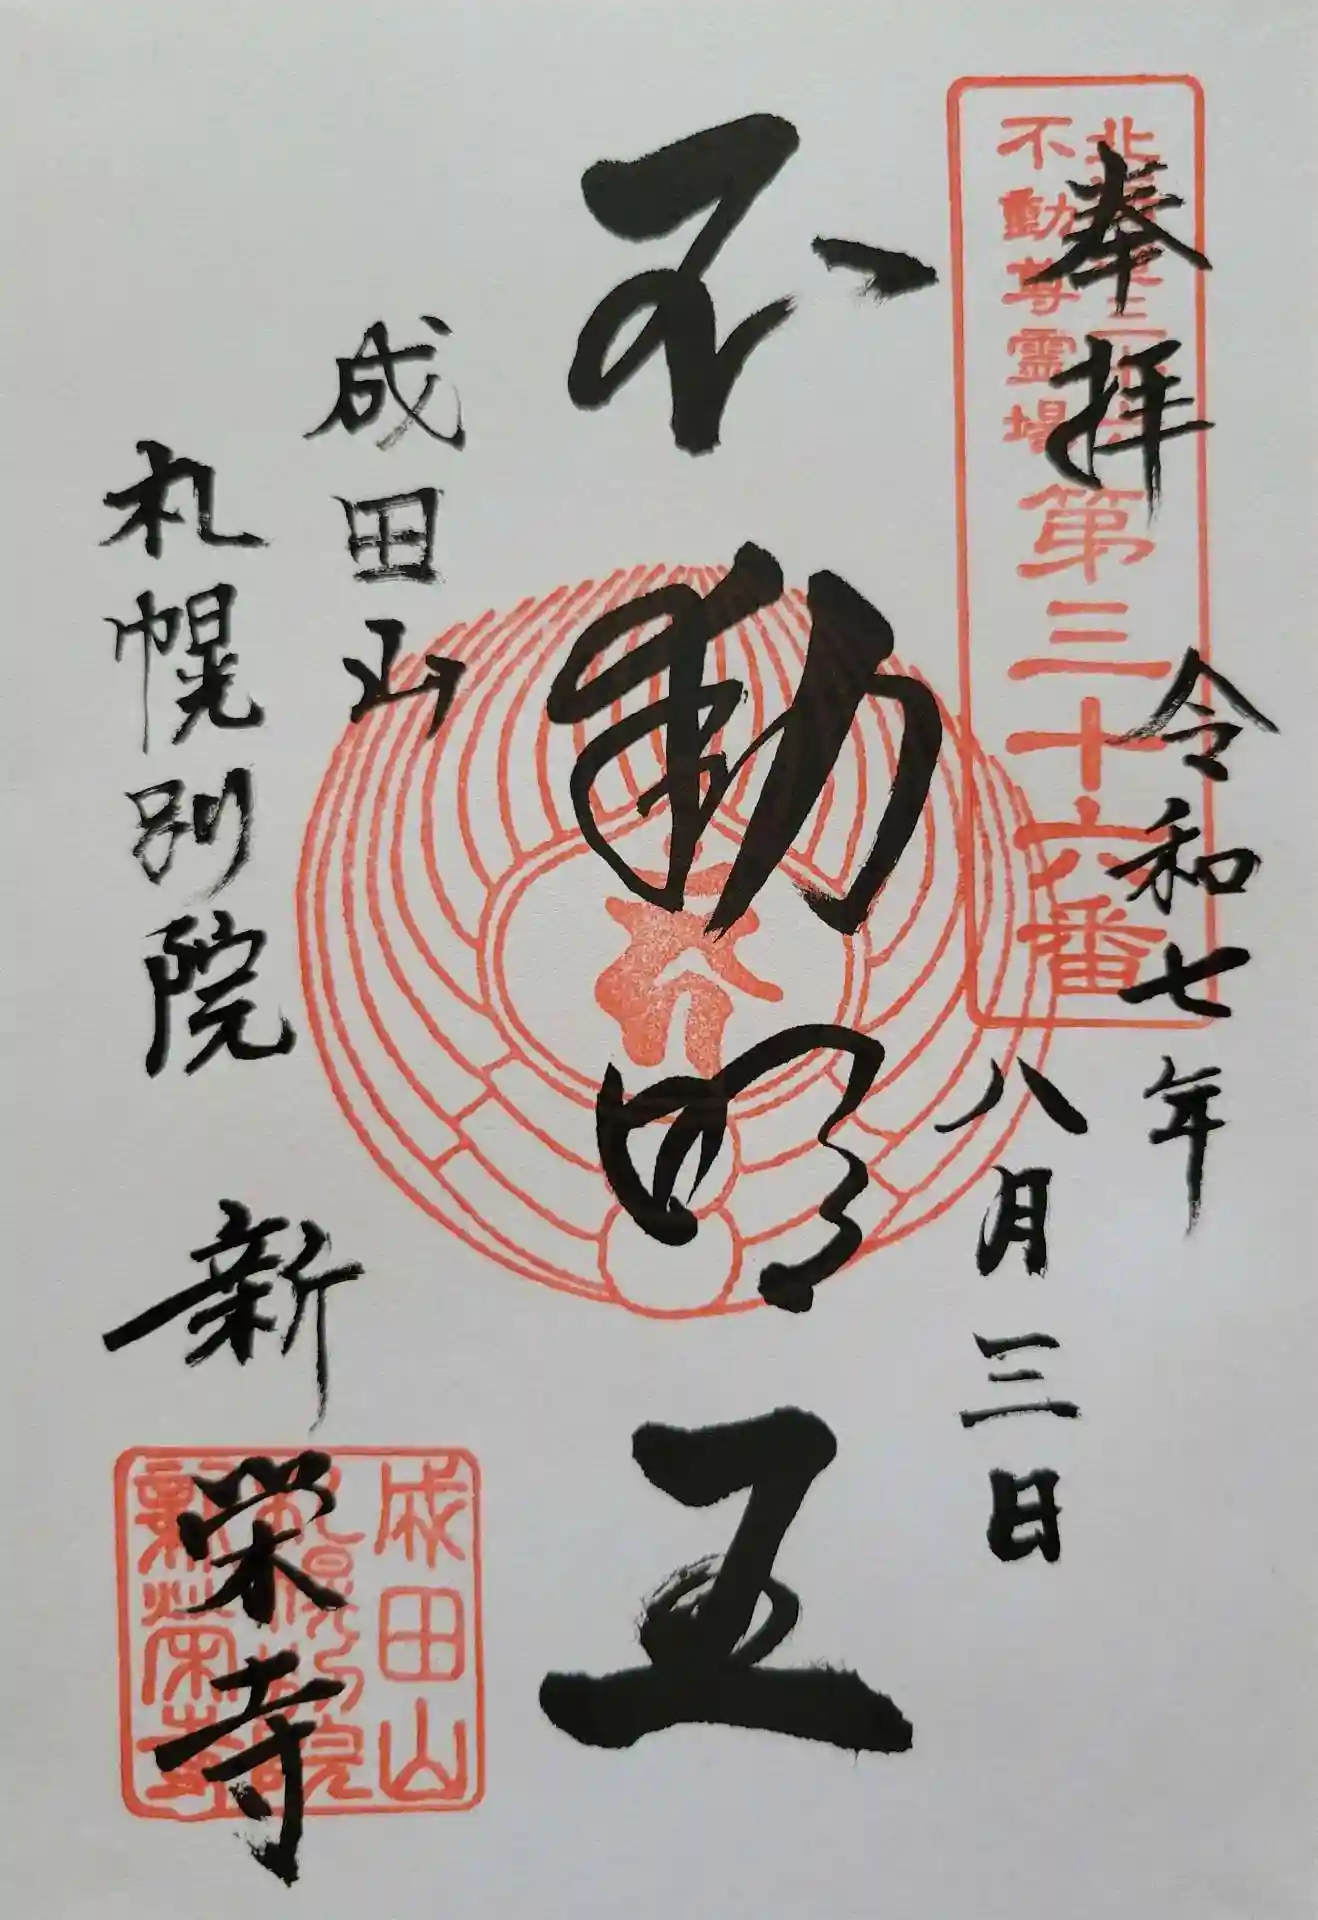 奉拝
北海道三十六
不動尊霊場
第三十六番
令和七年
八月三日
不動明王
成田山
札幌別院 新栄寺
成田山
札幌別院
新栄寺